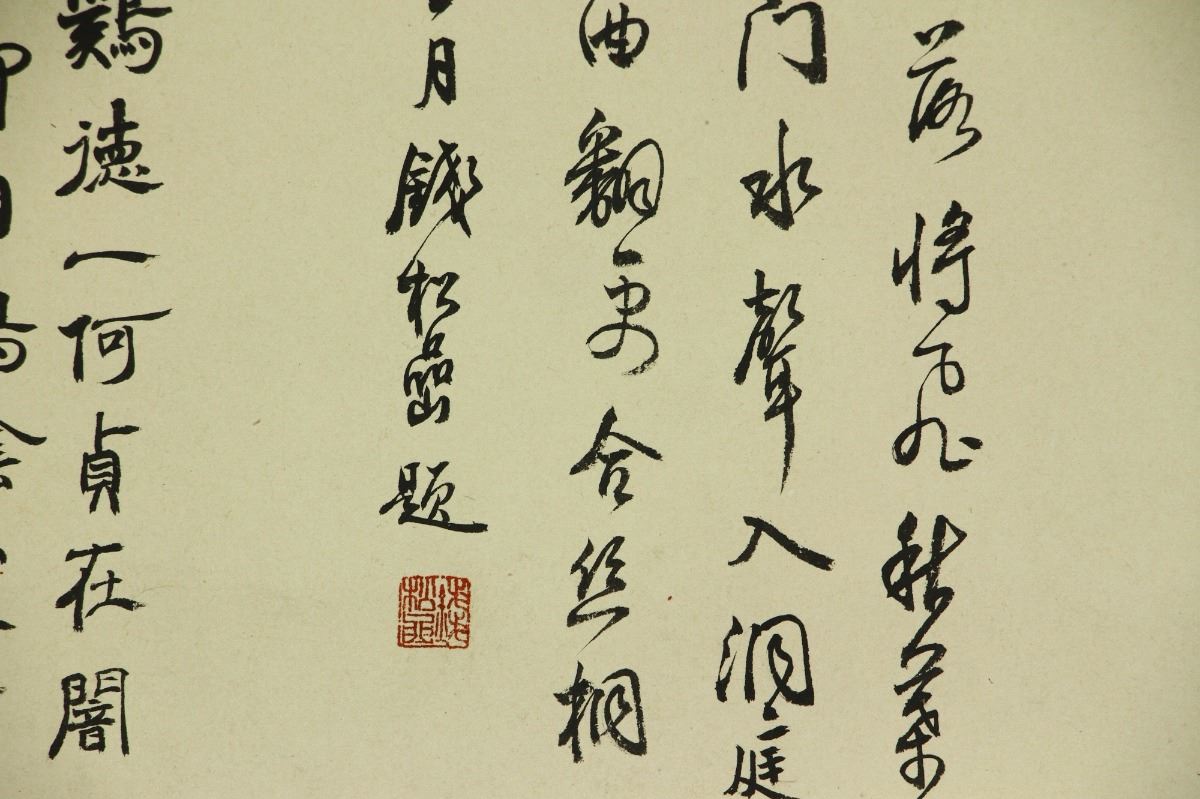 落將飛秋葉
門水聲入洞庭
曲翻更合絲桐
月錢松嵒題
鷄德一何貞在闇